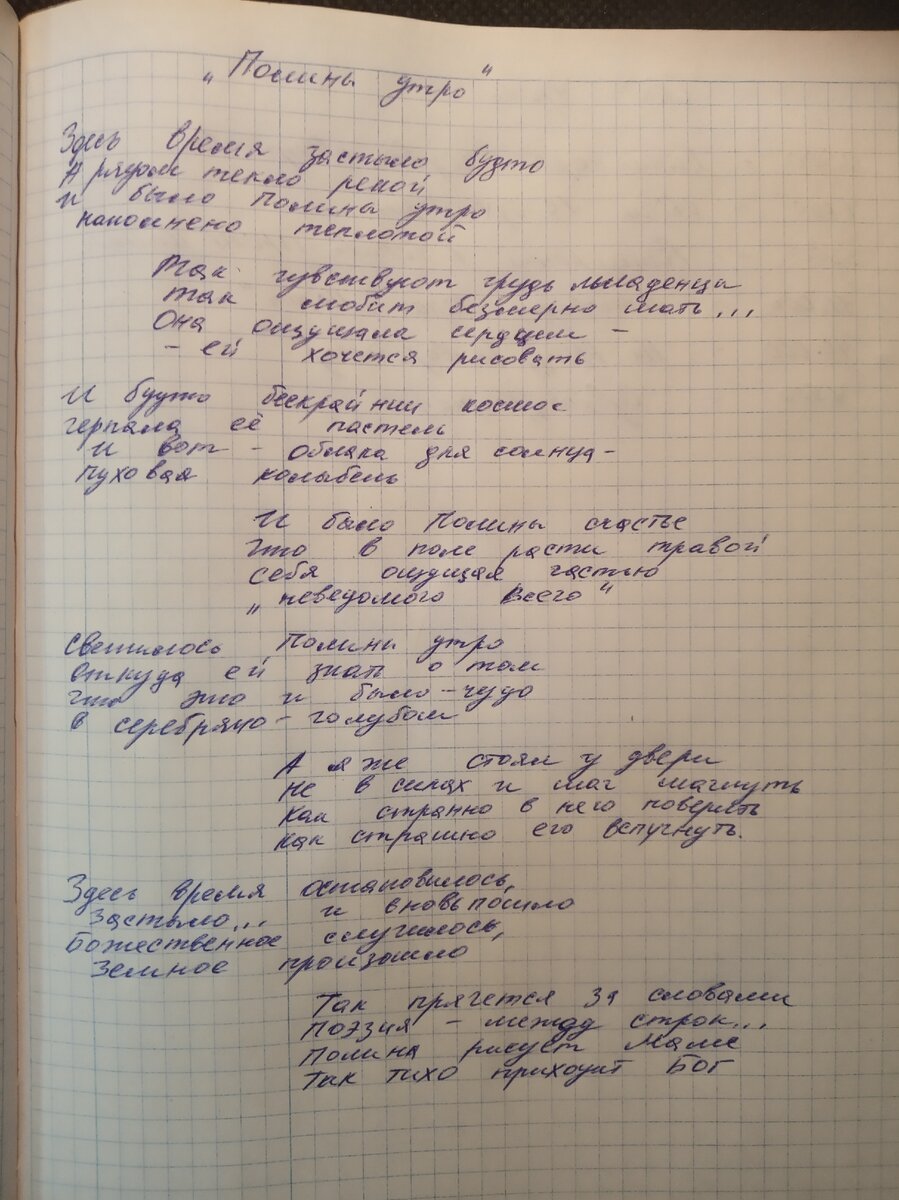 „Полины утро"
Здесь время застыло будто
А рядом текло рекой
И было Полины утро
наполнено теплотой
Так чувствуют грудь младенцы
так любит безмерно мать...
Она ощущала сердцем –
– ей хочется рисовать
И будто бескрайний космос
черпала её пастель
И вот – облака для солнца –
пуховая колыбель
И было Полины счастье
что в поле расти травой
себя ощущая частью
„неведомого всего"
Светилось Полины утро
откуда ей знать о том
что это и было – чудо
в серебряно – голубом
А я же стоял у двери
не в силах и мог магнуть
как странно в него поверить
как страшно его вспугнуть.
Здесь время остановилось,
Застыло... и вновь пошло
Божественное случилось,
Земное произошло
Так прячется за словами
Поэзия – между строк...
Полина рисует Маме
Так тихо приходит Бог